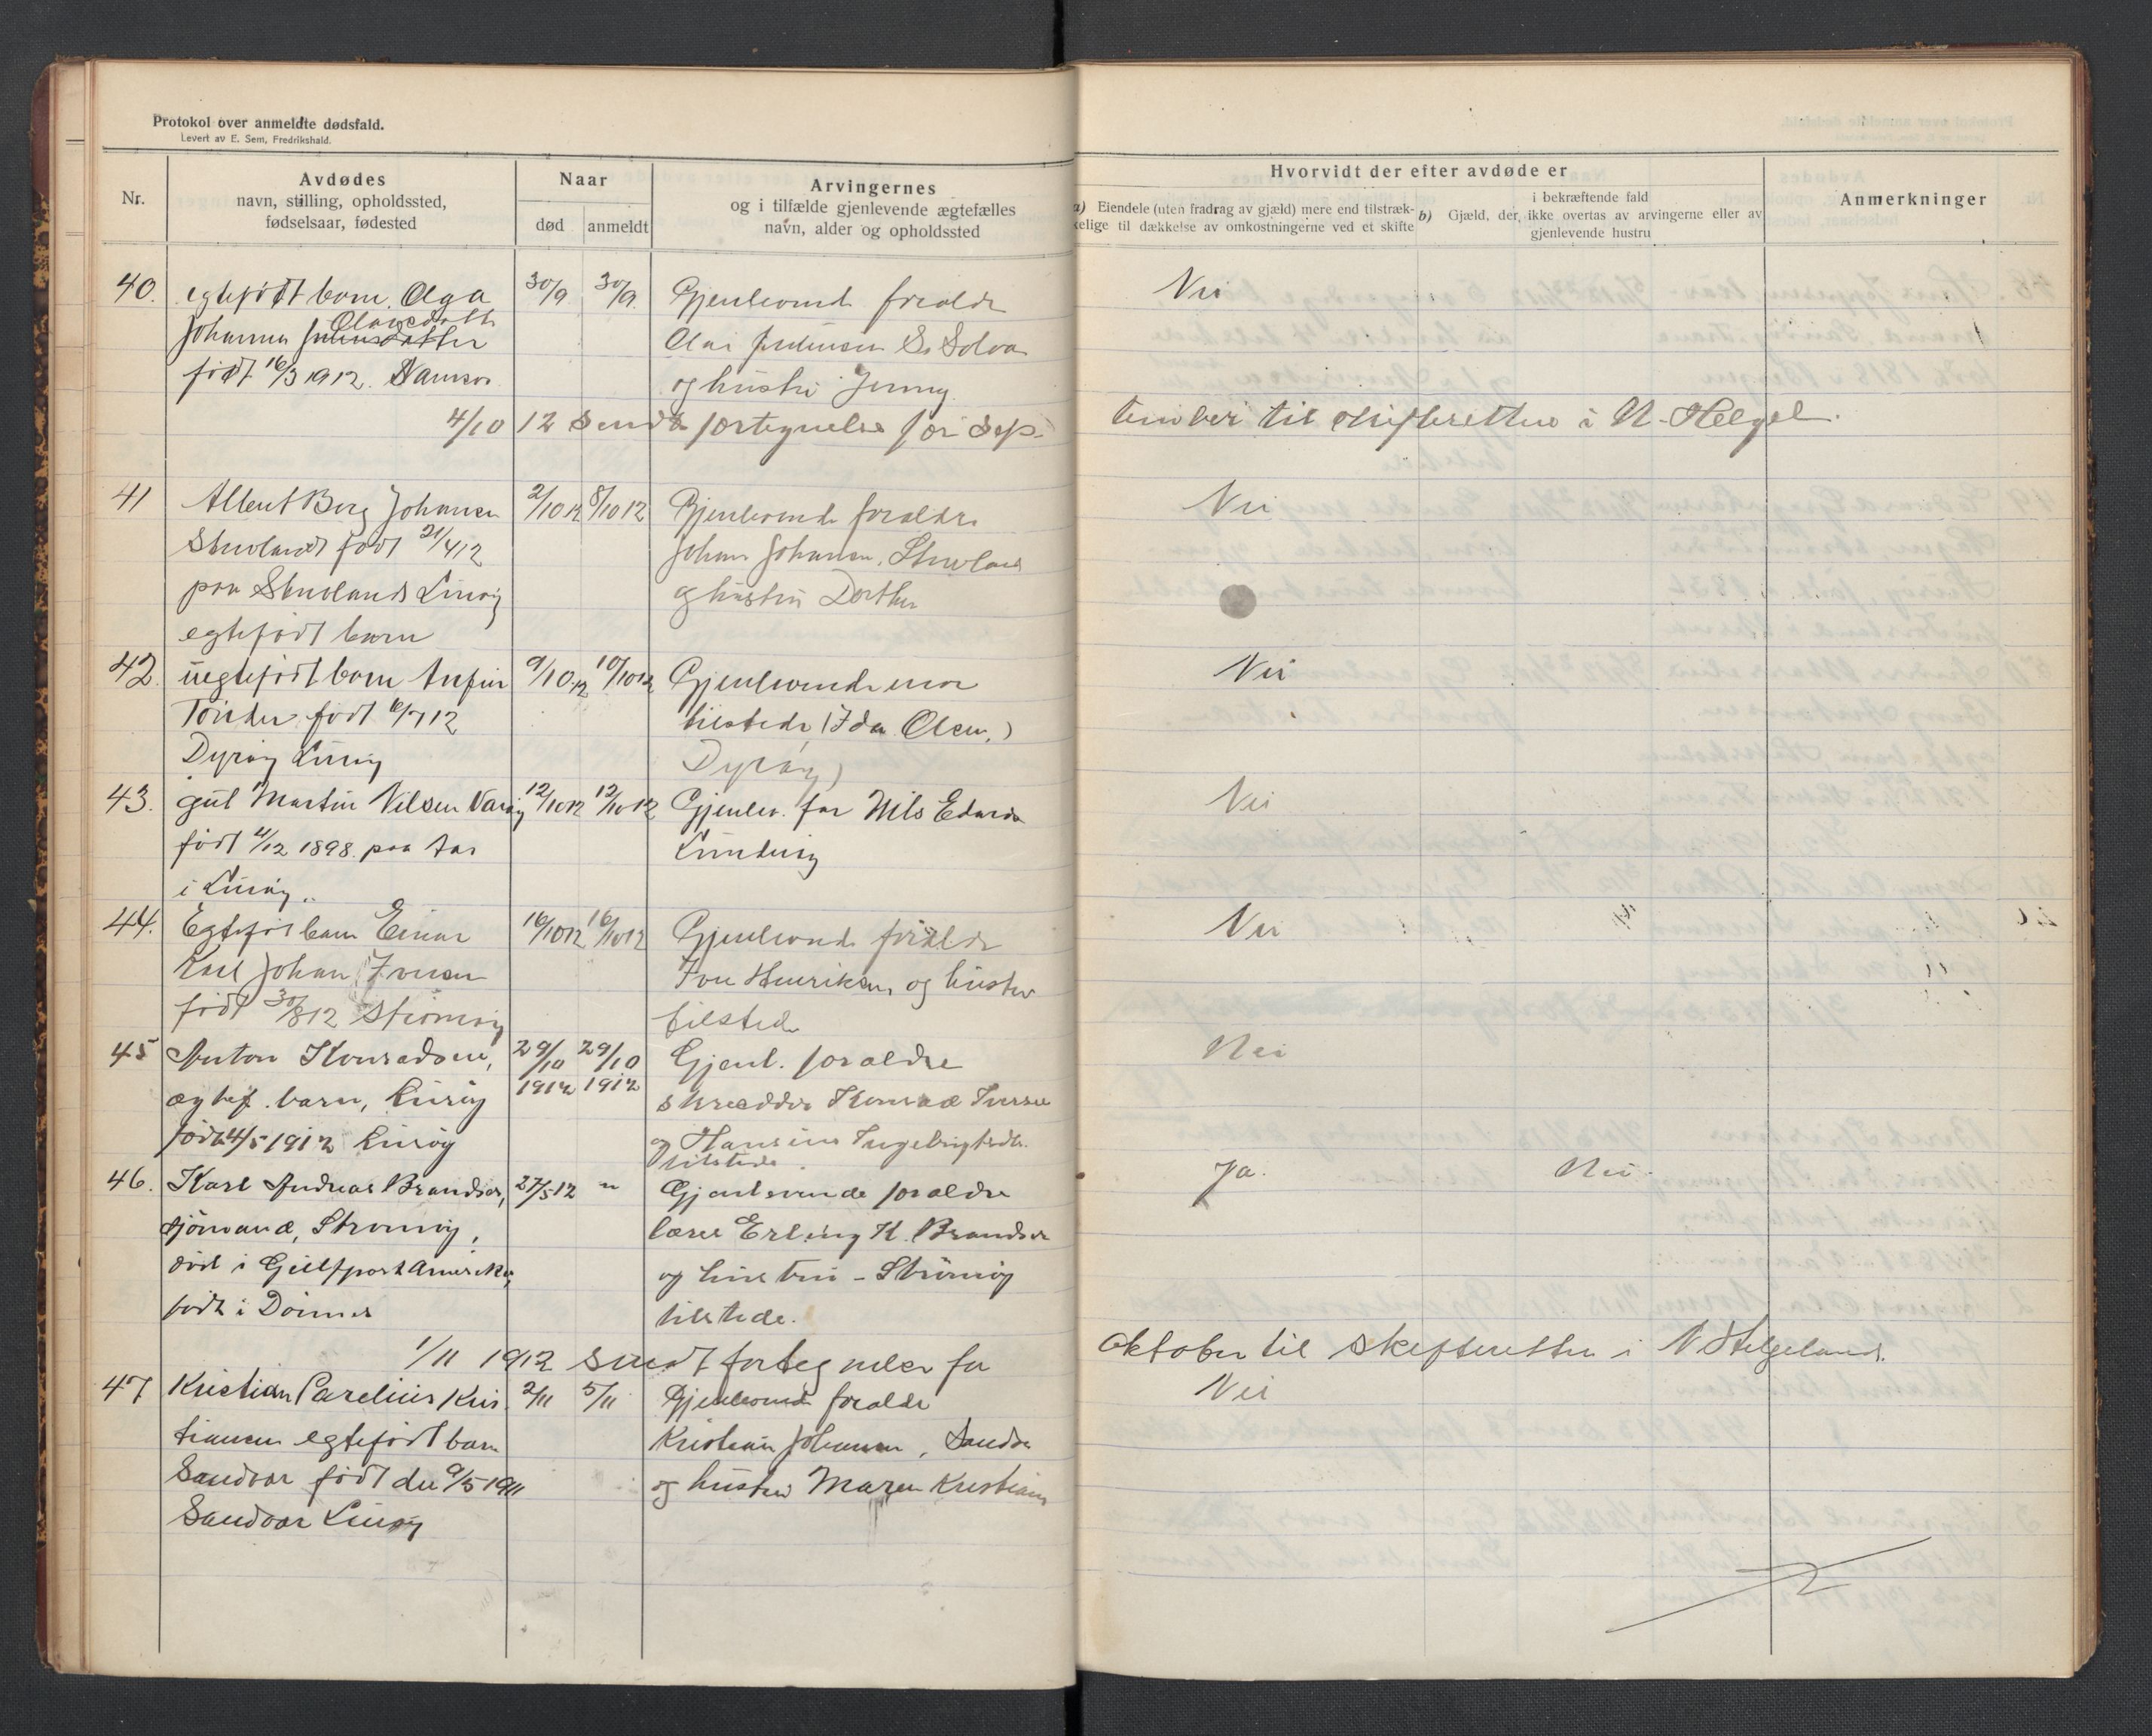 Protokol over anmeldte dødsfald.
Levert av E. Sem, Fredrikshald.
Nr.
Avdødes
navn, stilling, opholdssted,
fødselsaar, fødested
Naar
død
anmeldt
Arvingernes
og i tilfælde gjenlevende ægtefælles
navn, alder og opholdssted
Hvorvidt der efter avdøde er
a) Eiendele (uten fradrag av gjæld) mere end tilstræk-
kelige til dækkelse av omkostningerne ved et skifte
i bekræftende fald
b) Gjæld, der, ikke overtas av arvingerne eller av
gjenlevende hustru
Anmerkninger
40. egtefødt barn Olga
Olaisdatter
Johanna
født 16/3 1912.
30/9 30/9.
Gjenlevende forældre
Olai Jensen
og hustru Jenny.
Nei
4/10 12 Sendt fortegnelse for Sep-
tember til skifteretten i N-Helgel.
41 Albert Berg Johansen
Stuvland født 21/4 12
paa Stuvland Lurøy
egtefødt barn
2/10 12 8/10 12
Gjenlevende forældre
Johan Johansen, Stuvland
og hustru Dorthea
Nei
42. uegtefødt barn Anfin
født 16/7 12
Dyrøy Lurøy
9/10 12 10/10 12
Gjenlevende mor
tilstede (Ida Olsen,)
Dyrøy)
Nei
43. gut Martin Nilsen Varøy
født 4/12 1898. paa Aas
i Lurøy..
12/10 12 12/10 12
Gjenlev. far Nils Edvards
Nei
44. Egtefød barn Einar
Karl Johan Iversen
født 30/8 12 Strømøy
16/10 12 16/10 12
Gjenlevende forældre
Iver Henriksen og hustru
tilstede
Nei
45 Anton Konradsen,
ægtef. barn, Lurøy
født 4/5 1912 Lurøy
29/10 1912 29/10 1912
Gjenl. forældre
skrædder Konrad Iversen
og Hansine Ingebrigtsdtr.
tilstede.
Nei
46. Karl Andreas Brandser,
sjömand, Strømøy,
død i Gulfport Amerika,
født i Dönnes
27/5 12 "
Gjenlevende forældre
lærer Erling K. Brandser
og hustru - Strömøy
tilstede.
Ja. Nei.
1/11 1912 sendt fortegnelser for
Oktober til skifteretten i N Helgeland.
47 Kristian Parelius Kris
tiansen egtefødt barn
Sandvær født den 9/5 1911
Sandvær Lurøy
2/11 5/11
Gjenlevende forældre
Kristian Johansen, Sandvær
og hustru Maren Kristians
Nei